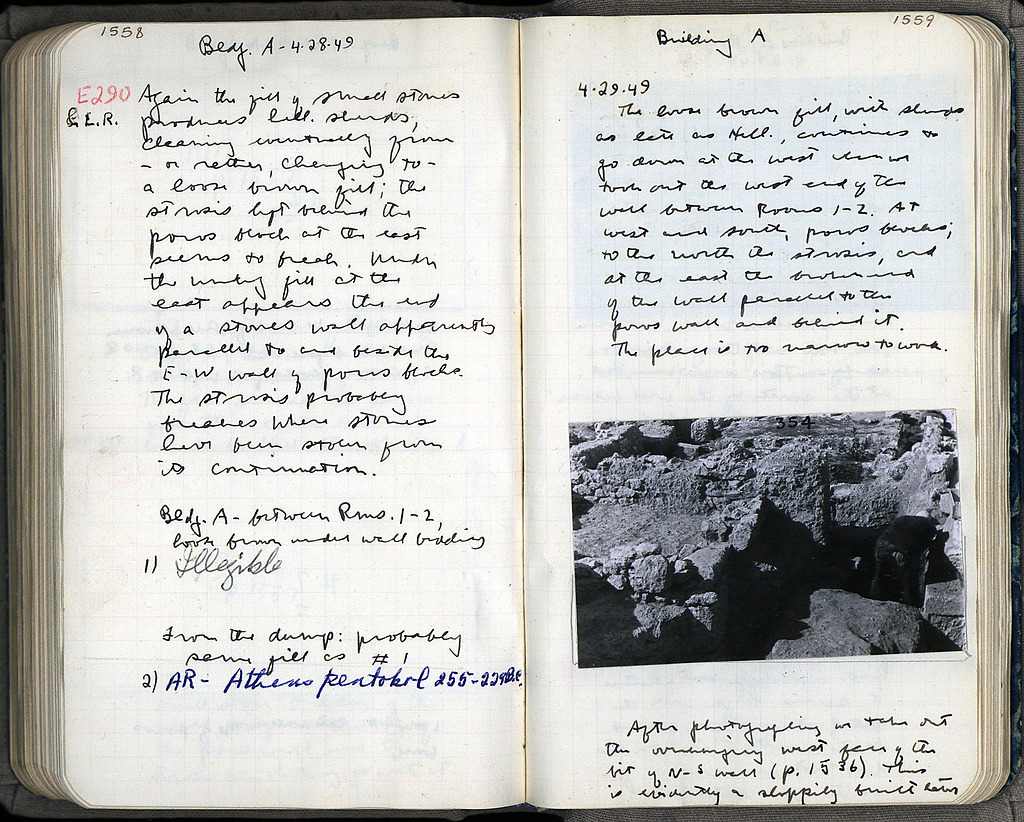 1558
Bldg. A - 4.28.49
E290 Again the fill of small stones
& E.R. produces hell. sherds,
clearing eventually from
- or rather, changing to -
a loose brown fill; the
strosis left behind the
poros block at the east
seems to break. Under
the fill at the
east appears the end
of a stones wall apparently
parallel to and beside the
E-W wall of poros blocks.
The strosis probably
breaches where stones
have been stolen from
its continuation.
Bldg. A - between Rms. 1-2,
loose brown under wall bedding
1) Illegible
From the dump: probably
same fill as # 1
2) AR - Athens pentobol 255-229 B.C.
1559
Building A
4.29.49
The loose brown fill, with sherds
as late as Hell., continues to
go down at the west when we
took out the west end of the
wall between Rooms 1-2. At
west and south, poros blocks;
to the north the strosis, and
at the east the broken end
of the wall parallel to the
poros wall and behind it.
The place is too narrow to work.
354
After photographing we take out
the overhanging west face of the
bit of N-S wall (p. 1536). This
is evidently a sloppily built late